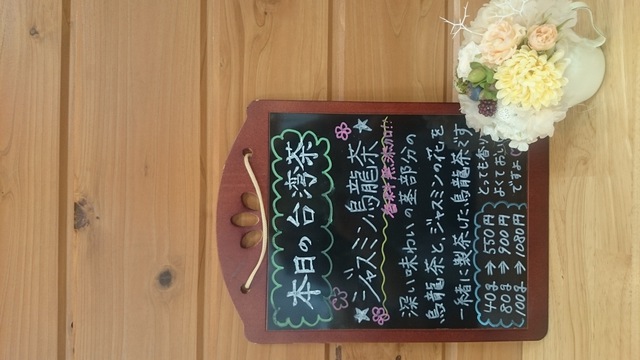 本日の台湾茶
ジャスミン烏龍茶
香料無添加!!
深い味わいの茎部分の
烏龍茶と、ジャスミンの花を
一緒に製茶した烏龍茶です
40g ⇒ 550円
80g ⇒ 900円
100g ⇒ 1080円
とっても香り
ですよ